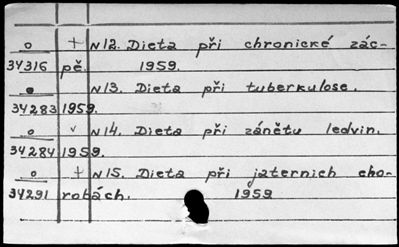 o + N12. Dieta při chronické zác-
34316 pě. 1959.
N13. Dieta při tuberkulose.
34283 1959.
o v N14. Dieta při zánětu ledvin.
34284 1959.
o + N15. Dieta při jaterních cho-
34291 robách. 1959